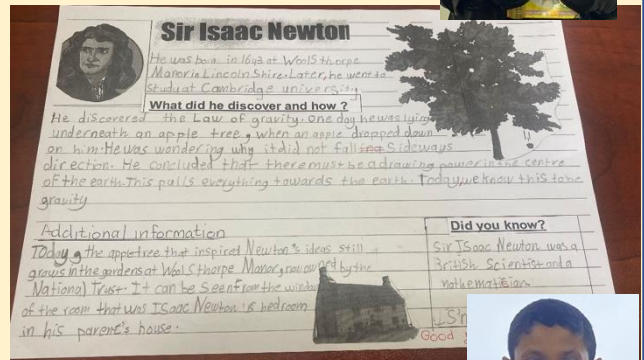 Sir Isaac Newton
He was born in 1642 at Woolsthorpe
Manor in Lincoln Shire. Later, he went to
study at Cambridge university.
What did he discover and how ?
He discovered the Law of gravity. One day he was lying
underneath an apple tree, when an apple dropped down
on him. He was wondering why it did not fall Sideways
direction. He concluded that there must be a drawing power in the centre
of the earth. This pulls everything towards the earth. Today, we know this to be
gravity
Additional information
Today, the appletree that inspired Newton's ideas still
grows in the gardens at Woolsthorpe Manor, now owned by the
National Trust. It can be seen from the window
of the room that was Isaac Newton's bedroom
in his parent's house.
Did you know?
Sir Isaac Newton was a
British Scientist and a
mathematician.
Good